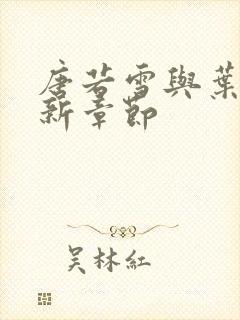 唐若雪與葉
新章節
吴林紅